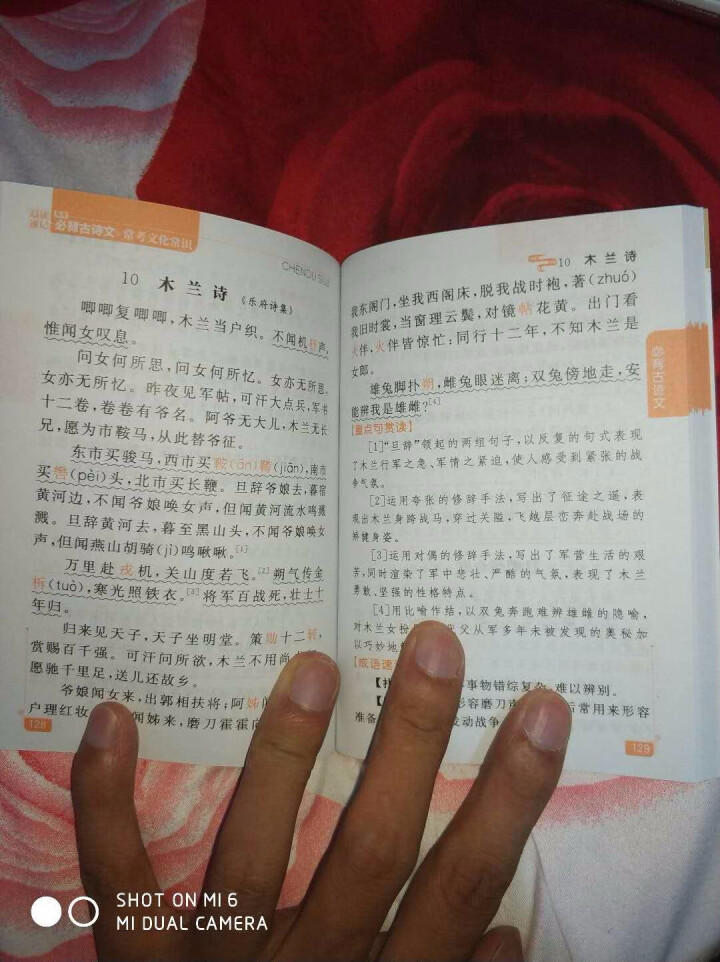 晨读
速记
必背古诗文、常考文化常识
CHENDU SUJI
10 木兰诗 《乐府诗集》
唧唧复唧唧，木兰当户织。不闻机杼声，
惟闻女叹息。
问女何所思，问女何所忆。女亦无所思，
女亦无所忆。昨夜见军帖，可汗大点兵，军书
十二卷，卷卷有爷名。阿爷无大儿，木兰无长
兄，愿为市鞍马，从此替爷征。
东市买骏马，西市买鞍(ān)鞯(jiān)，南市
买辔(pèi)头，北市买长鞭。旦辞爷娘去，暮宿
黄河边，不闻爷娘唤女声，但闻黄河流水鸣溅
溅。旦辞黄河去，暮至黑山头，不闻爷娘唤女
声，但闻燕山胡骑(jì)鸣啾啾。[1]
万里赴戎机，关山度若飞。[2]朔气传金
柝(tuò)，寒光照铁衣。[3]将军百战死，壮士十
年归。
归来见天子，天子坐明堂。策勋十二转，
赏赐百千强。可汗问所欲，木兰不用尚
愿驰千里足，送儿还故乡。
爷娘闻女来，出郭相扶将；阿姊
户理红妆 闻姊来，磨刀霍霍向
128
10 木兰诗
我东阁门，坐我西阁床，脱我战时袍，著(zhuó)
我旧时裳，当窗理云鬓，对镜帖花黄。出门看
火伴，火伴皆惊忙；同行十二年，不知木兰是
女郎。
雄兔脚扑朔，雌兔眼迷离；双兔傍地走，安
能辨我是雄雌？[4]
必背古诗文
【重点句赏读】
[1]“旦辞”领起的两组句子，以反复的句式表现
了木兰行军之急、军情之紧迫，使人感受到紧张的战
争气氛。
[2]运用夸张的修辞手法，写出了征途之遥，表
现出木兰身跨战马，穿过关隘，飞越层峦奔赴战场的
矫健身姿。
[3]运用对偶的修辞手法，写出了军营生活的艰
苦，同时渲染了军中悲壮、严酷的气氛，表现了木兰
勇敢、坚强的性格特点。
[4]用比喻作结，以双兔奔跑难辨雄雌的隐喻，
对木兰女扮 父从军多年未被发现的奥秘加
以巧妙地
【成语速
【扑 事物错综复杂，难以辨别。
【 形容磨刀 后常用来形容
准备 发动战争
129
SHOT ON MI 6
MI DUAL CAMERA